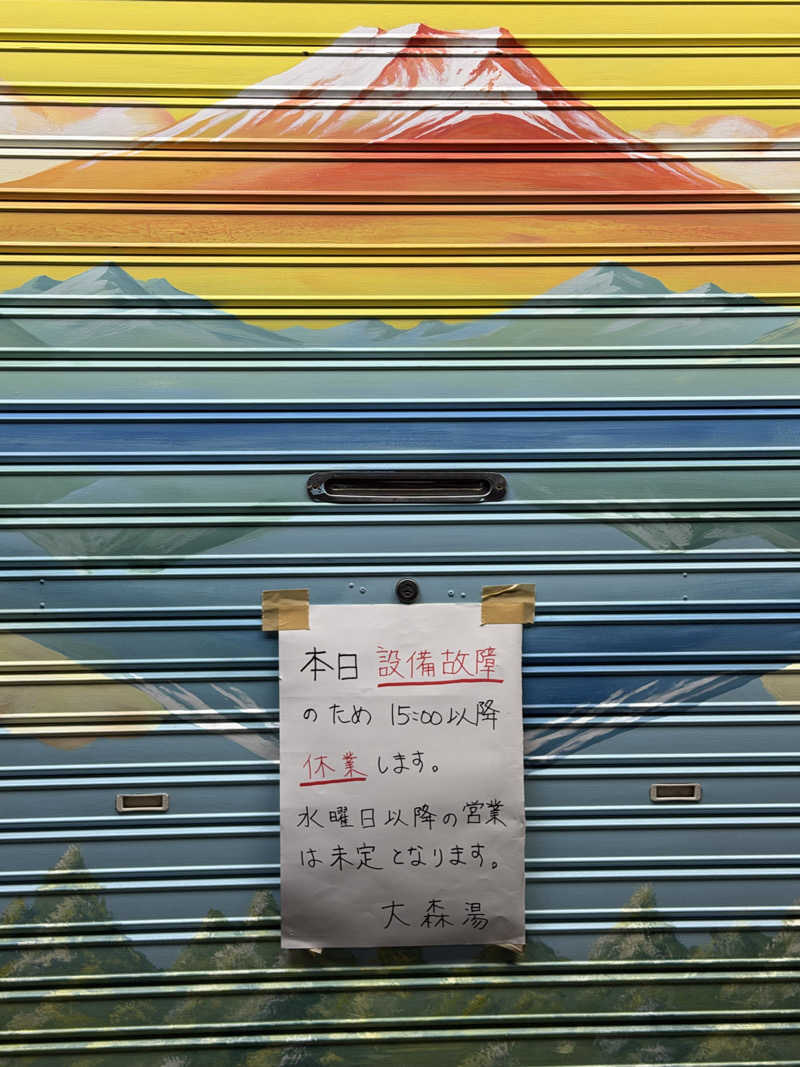 本日 設備故障
のため 15:00以降
休業します。
水曜日以降の営業
は未定となります。
大森湯